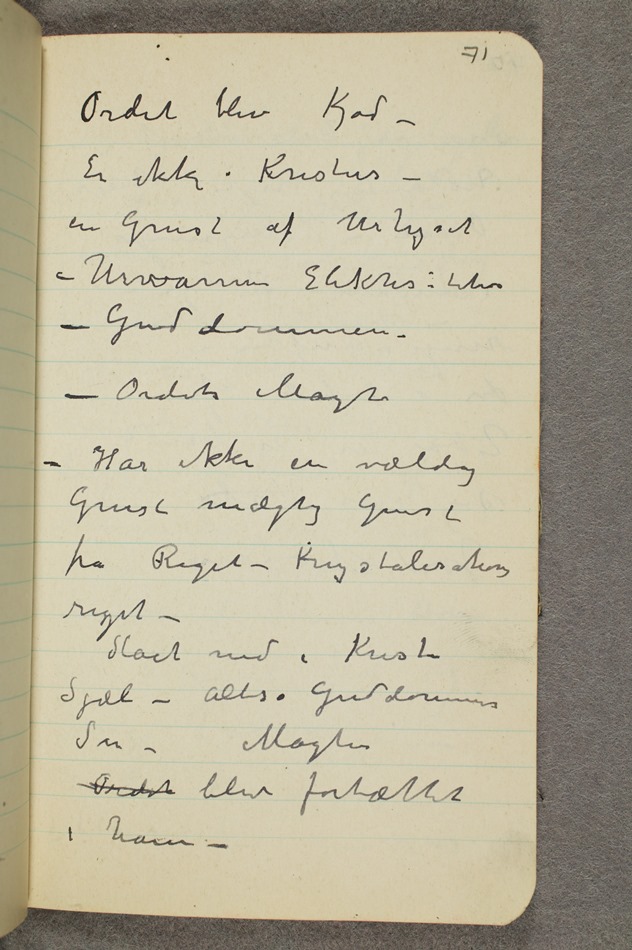 71
Ordet blev Kjød –
Er ikke i Kristus –
en Gnist af Urlyset
– Urvarmen Elektri:
– Guddommen –
– Ordets Magt
– Har ikke en vældig
Gnist mægtig Gnist
fra Riget – Krystalisations
riget –
Slaet ned i Kristi
Sjæl – altså Guddommens
Søn – Magten
Ordet blev fortættet
i ham –